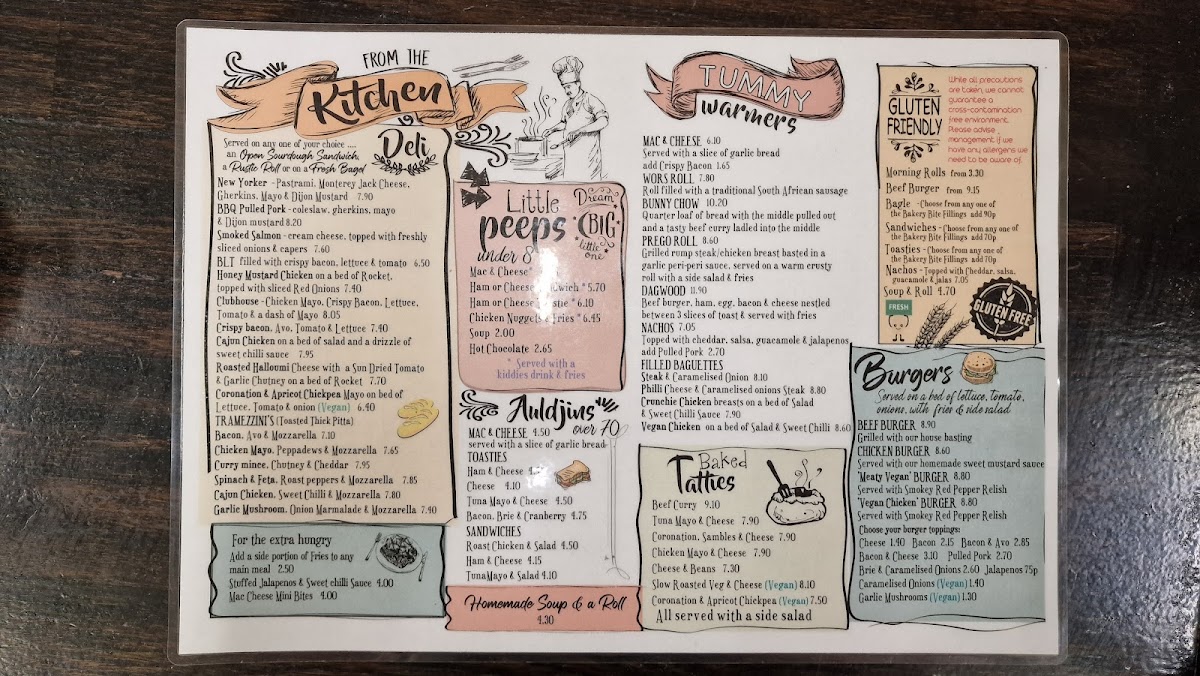 FROM THE
Kitchen
Deli
Served on any one of your choice ....
an Open Sourdough Sandwich,
a Rustic Roll or on a Fresh Bagel
New Yorker -Pastrami, Monterey Jack Cheese,
Gherkins, Mayo & Dijon Mustard 7.90
BBQ Pulled Pork - coleslaw, gherkins, mayo
& Dijon mustard 8.20
Smoked Salmon - cream cheese, topped with freshly
sliced onions & capers 7.60
BLT filled with crispy bacon, lettuce & tomato 6.50
Honey Mustard Chicken on a bed of Rocket,
topped with sliced Red Onions 7.40
Clubhouse -Chicken Mayo, Crispy Bacon, Lettuce,
Tomato & a dash of Mayo 8.05
Crispy bacon, Avo, Tomato & Lettuce 7.40
Cajun Chicken on a bed of salad and a drizzle of
sweet chilli sauce 7.95
Roasted Halloumi Cheese with a Sun Dried Tomato
& Garlic Chutney on a bed of Rocket 7.70
Coronation & Apricot Chickpea Mayo on bed of
Lettuce, Tomato & onion (Vegan) 6.40
TRAMEZZINI'S (Toasted Thick Pitta)
Bacon, Avo & Mozzarella 7.10
Chicken Mayo, Peppadews & Mozzarella 7.65
Curry mince, Chutney & Cheddar 7.95
Spinach & Feta, Roast peppers & Mozzarella 7.85
Cajun Chicken, Sweet Chilli & Mozzarella 7.80
Garlic Mushroom, Onion Marmalade & Mozzarella 7.40
For the extra hungry
Add a side portion of Fries to any
main meal 2.50
Stuffed Jalapenos & Sweet chilli Sauce 4.00
Mac Cheese Mini Bites 4.00
Little
peeps
under 8
Dream
BIG
little
one
Mac & Cheese*
Ham or Cheese
wich * 5.70
Ham or Cheese
* 6.10
Chicken Nuggets & Fries * 6.45
Soup 2.00
Hot Chocolate 2.65
* Served with a
kiddies drink & fries
Auldjins
over 70
MAC & CHEESE 4.50
served with a slice of garlic bread
TOASTIES
Ham & Cheese
Cheese 4.10
Tuna Mayo & Cheese 4.50
Bacon, Brie & Cranberry 4.75
SANDWICHES
Roast Chicken & Salad 4.50
Ham & Cheese 4.15
TunaMayo & Salad 4.10
Homemade Soup & a Roll
4.30
TUMMY
warmers
MAC & CHEESE 6.10
Served with a slice of garlic bread
add Crispy Bacon 1.65
WORS ROLL 7.80
Roll filled with a traditional South African sausage
BUNNY CHOW 10.20
Quarter loaf of bread with the middle pulled out
and a tasty beef curry ladled into the middle
PREGO ROLL 8.60
Grilled rump steak/chicken breast basted in a
garlic peri-peri sauce, served on a warm crusty
roll with a side salad & fries
DAGWOOD 11.90
Beef burger, ham, egg, bacon & cheese nestled
between 3 slices of toast & served with fries
NACHOS 7.05
Topped with cheddar, salsa, guacamole & jalapenos
add Pulled Pork 2.70
FILLED BAGUETTES
Steak & Caramelised Onion 8.10
Philli Cheese & Caramelised onions Steak 8.80
Crunchie Chicken breasts on a bed of Salad
& Sweet Chilli Sauce 7.90
Vegan Chicken on a bed of Salad & Sweet Chilli 8.60
Baked
Tatties
Beef Curry 9.10
Tuna Mayo & Cheese 7.90
Coronation, Sambles & Cheese 7.90
Chicken Mayo & Cheese 7.90
Cheese & Beans 7.30
Slow Roasted Veg & Cheese (Vegan) 8.10
Coronation & Apricot Chickpea (Vegan) 7.50
All served with a side salad
GLUTEN
FRIENDLY
While all precautions
are taken, we cannot
guarantee a
cross-contamination
free environment.
Please advise
management if we
have any allergens we
need to be aware of.
Morning Rolls from 3.30
Beef Burger from 9.15
Bagle -Choose from any one of
the Bakery Bite Fillings add 90p
Sandwiches -Choose from any one of
the Bakery Bite Fillings add 70p
Toasties -Choose from any one of
the Bakery Bite Fillings add 70p
Nachos -Topped with Cheddar, salsa,
guacamole & jalas 7.05
Soup & Roll 4.70
FRESH
GLUTEN FREE
Burgers
Served on a bed of lettuce, tomato,
onions, with fries & side salad
BEEF BURGER 8.90
Grilled with our house basting
CHICKEN BURGER 8.60
Served with our homemade sweet mustard sauce
'Meaty Vegan' BURGER 8.80
Served with Smokey Red Pepper Relish
'Vegan Chicken' BURGER 8.80
Served with Smokey Red Pepper Relish
Choose your burger toppings:
Cheese 1.40 Bacon 2.15 Bacon & Avo 2.85
Bacon & Cheese 3.10 Pulled Pork 2.70
Brie & Caramelised Onions 2.60 Jalapenos 75p
Caramelised Onions (Vegan) 1.40
Garlic Mushrooms (Vegan) 1.30